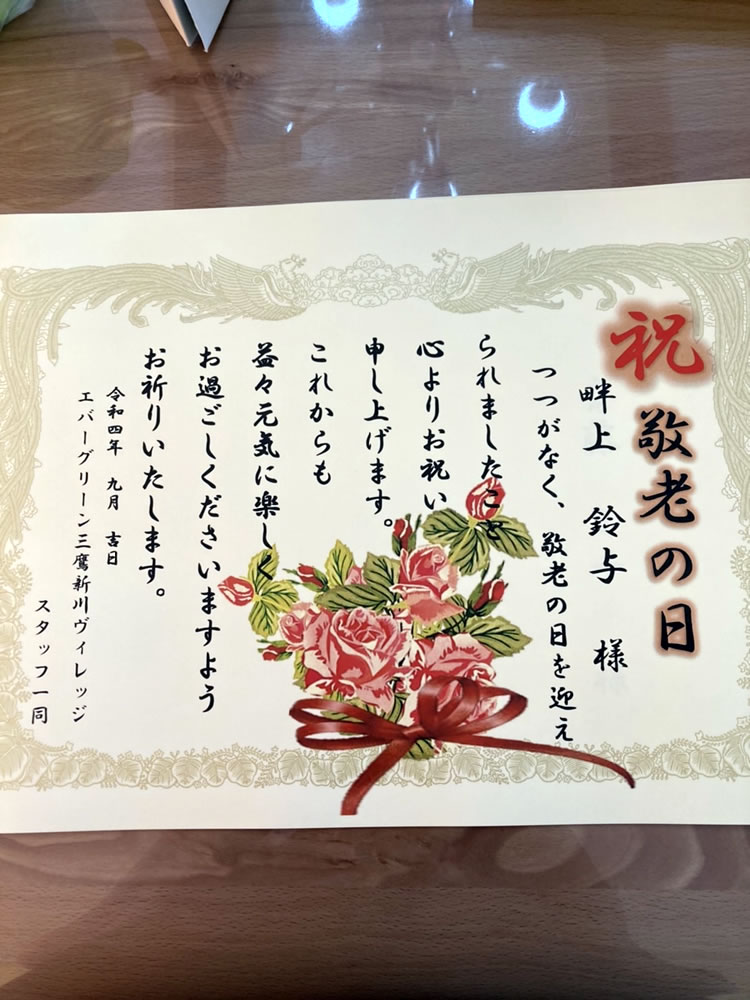 祝 敬老の日
畔上 鈴与 様
つつがなく、敬老の日を迎え
られましたこと
心よりお祝い
申し上げます。
これからも
益々元気に楽しく
お過ごしくださいますよう
お祈りいたします。
令和四年 九月 吉日
エバーグリーン三鷹新川ヴィレッジ
スタッフ一同